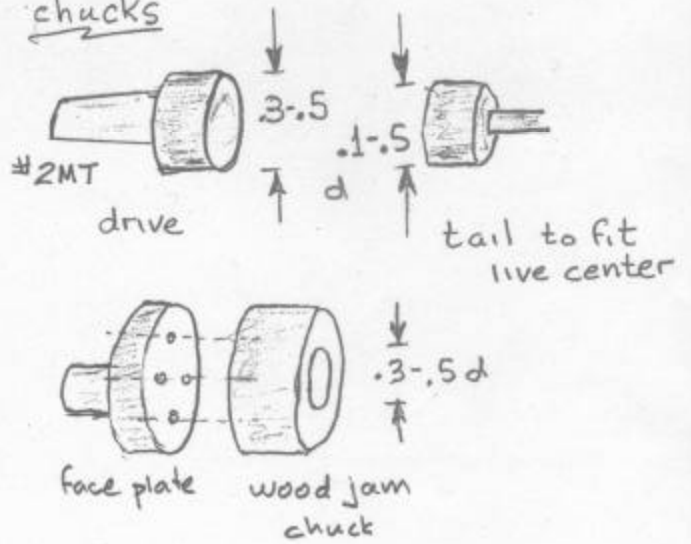 chucks
.3-.5
.1-.5
d
#2MT
drive
tail to fit
live center
.3-.5 d
face plate
wood jam
chuck